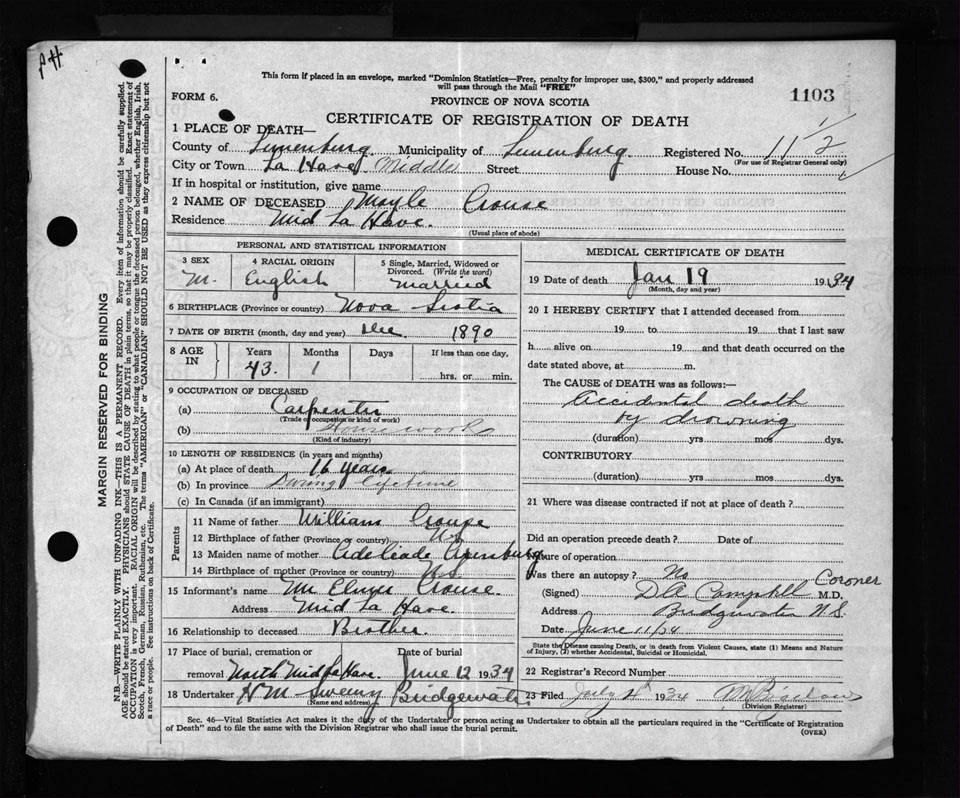 This form if placed in an envelope, marked "Dominion Statistics—Free, penalty for improper use, $300," and properly addressed
will pass through the Mail "FREE"
FORM 6.
PROVINCE OF NOVA SCOTIA
1103
CERTIFICATE OF REGISTRATION OF DEATH
1 PLACE OF DEATH—
County of Lunenburg Municipality of Lunenburg Registered No. 11 1/2
(For use of Registrar General only)
City or Town La Have Middle Street House No.
If in hospital or institution, give name
2 NAME OF DECEASED Moyle Crouse
Residence Mid La Have.
(Usual place of abode)
PERSONAL AND STATISTICAL INFORMATION
3 SEX 4 RACIAL ORIGIN 5 Single, Married, Widowed or
Divorced. (Write the word)
M. English married
6 BIRTHPLACE (Province or country) Nova Scotia
7 DATE OF BIRTH (month, day and year) Dec 1890
8 AGE IN Years Months Days If less than one day,
43. 1 hrs. or min.
9 OCCUPATION OF DECEASED
(a) Carpenter
(Trade of occupation or kind of work)
(b) House work
(Kind of industry)
10 LENGTH OF RESIDENCE (in years and months)
(a) At place of death 16 years
(b) In province During lifetime
(c) In Canada (if an immigrant)
Parents
11 Name of father William Crouse
12 Birthplace of father (Province or country) N.S.
13 Maiden name of mother Adeliade
14 Birthplace of mother (Province or country) N.S.
15 Informant's name Mr Elmer Crouse.
Address Mid La Have.
16 Relationship to deceased Brother.
17 Place of burial, cremation or Date of burial
removal North Mid La Have. June 12 1934
18 Undertaker H M Sweeny Bridgewater
(Name and address)
MEDICAL CERTIFICATE OF DEATH
19 Date of death Jan 19 1934
(Month, day and year)
20 I HEREBY CERTIFY that I attended deceased from
19 to 19 that I last saw
h alive on 19 and that death occurred on the
date stated above, at m.
The CAUSE of DEATH was as follows:—
Accidental death
by drowning
(duration) yrs mos dys.
CONTRIBUTORY
(duration) yrs mos dys.
21 Where was disease contracted if not at place of death?
Did an operation precede death? Date of
Nature of operation
Was there an autopsy? No
Coroner
(Signed) D A Campbell M.D.
Address Bridgewater N.S.
Date June 11/34
State the Disease causing Death, or in death from Violent Causes, state (1) Means and Nature
of Injury, (2) whether Accidental, Suicidal or Homicidal.
22 Registrar's Record Number
23 Filed July 1934
(Division Registrar)
Sec. 46—Vital Statistics Act makes it the duty of the Undertaker or person acting as Undertaker to obtain all the particulars required in the "Certificate of Registration
of Death" and to file the same with the Division Registrar who shall issue the burial permit.
(OVER)
MARGIN RESERVED FOR BINDING
N.B.—WRITE PLAINLY WITH UNFADING INK—THIS IS A PERMANENT RECORD. Every item of information should be carefully supplied.
AGE should be stated EXACTLY. PHYSICIANS should STATE CAUSE OF DEATH in plain terms, so that it may be properly classified. Exact statement of
OCCUPATION is very important. RACIAL ORIGIN will be described by stating to what people or tongue the deceased person belonged, whether English, Irish,
Scotch, French, German, Russian, Ruthenian, etc. The terms "AMERICAN" or "CANADIAN" SHOULD NOT BE USED as they express citizenship but not
a race or people. See instructions on back of Certificate.